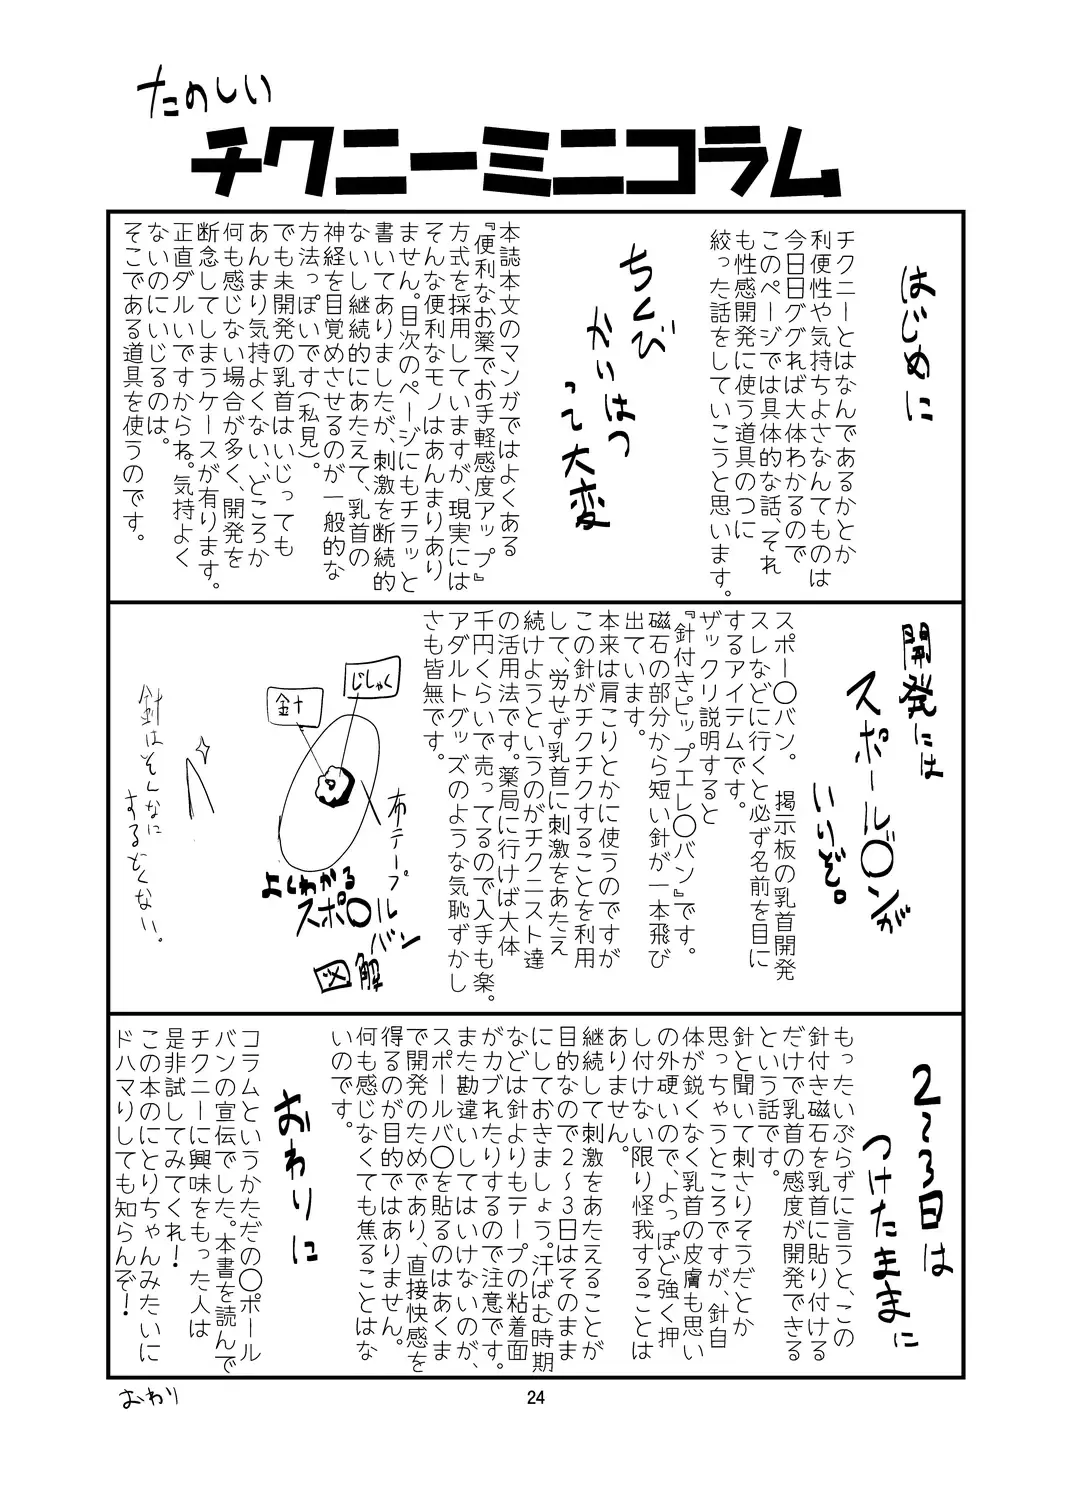 たのしい
チクニーミニコラム
はじめに
チクニーとはなんであるかとか
利便性や気持ちよさなんてものは
今日日ググれば大体わかるので
このページでは具体的な話、それ
も性感開発に使う道具のつに
絞った話をしていこうと思います。
ちくび
かいはつ
って大変
本誌本文のマンガではよくある
『便利なお薬でお手軽感度アップ』
方式を採用していますが、現実には
そんな便利なモノはあんまりあり
ません。目次のページにもチラッと
書いてありましたが、刺激を断続的
ないし継続的にあたえて、乳首の
神経を目覚めさせるのが一般的な
方法っぽいです(私見)。
でも未開発の乳首はいじっても
あんまり気持よくない、どころか
何も感じない場合が多く、開発を
断念してしまうケースが有ります。
正直ダルいですからね。気持よく
ないのにいじるのは。
そこである道具を使うのです。
開発には
スポール〇ンが
いりぞ。
スポー〇バン。　掲示板の乳首開発
スレなどに行くと必ず名前を目に
するアイテムです。
ザックリ説明すると
『針付きピップエレ〇バン』です。
磁石の部分から短い針が一本飛び
出ています。
本来は肩こりとかに使うのですが
この針がチクチクすることを利用
して、労せず乳首に刺激をあたえ
続けようというのがチクニスト達
の活用法です。薬局に行けば大体
千円くらいで売ってるので入手も楽。
アダルトグッズのような気恥ずかし
さも皆無です。
じしゃく
針
布テープ
よくわかる
スポ〇ル
バン
図解
針はそんなに
するどくない。
2～3日は
つけたままに
もったいぶらずに言うと、この
針付き磁石を乳首に貼り付ける
だけで乳首の感度が開発できる
という話です。
針と聞いて刺さりそうだとか
思っちゃうところですが、針自
体が鋭くなく乳首の皮膚も思い
の外硬いので、よっぽど強く押
し付けない限り怪我することは
ありません。
継続して刺激をあたえることが
目的なので2～3日はそのまま
にしておきましょう。汗ばむ時期
などは針よりもテープの粘着面
がカブれたりするので注意です。
また勘違いしてはいけないのが、
スポールバ〇を貼るのはあくま
で開発のためであり、直接快感を
得るのが目的ではありません。
何も感じなくても焦ることはな
いのです。
おわりに
コラムというかただの〇ポール
バンの宣伝でした。本書を読んで
チクニーに興味をもった人は
是非試してみてくれ！
この本のにとりちゃんみたいに
ドハマりしても知らんぞ！
おわり
24